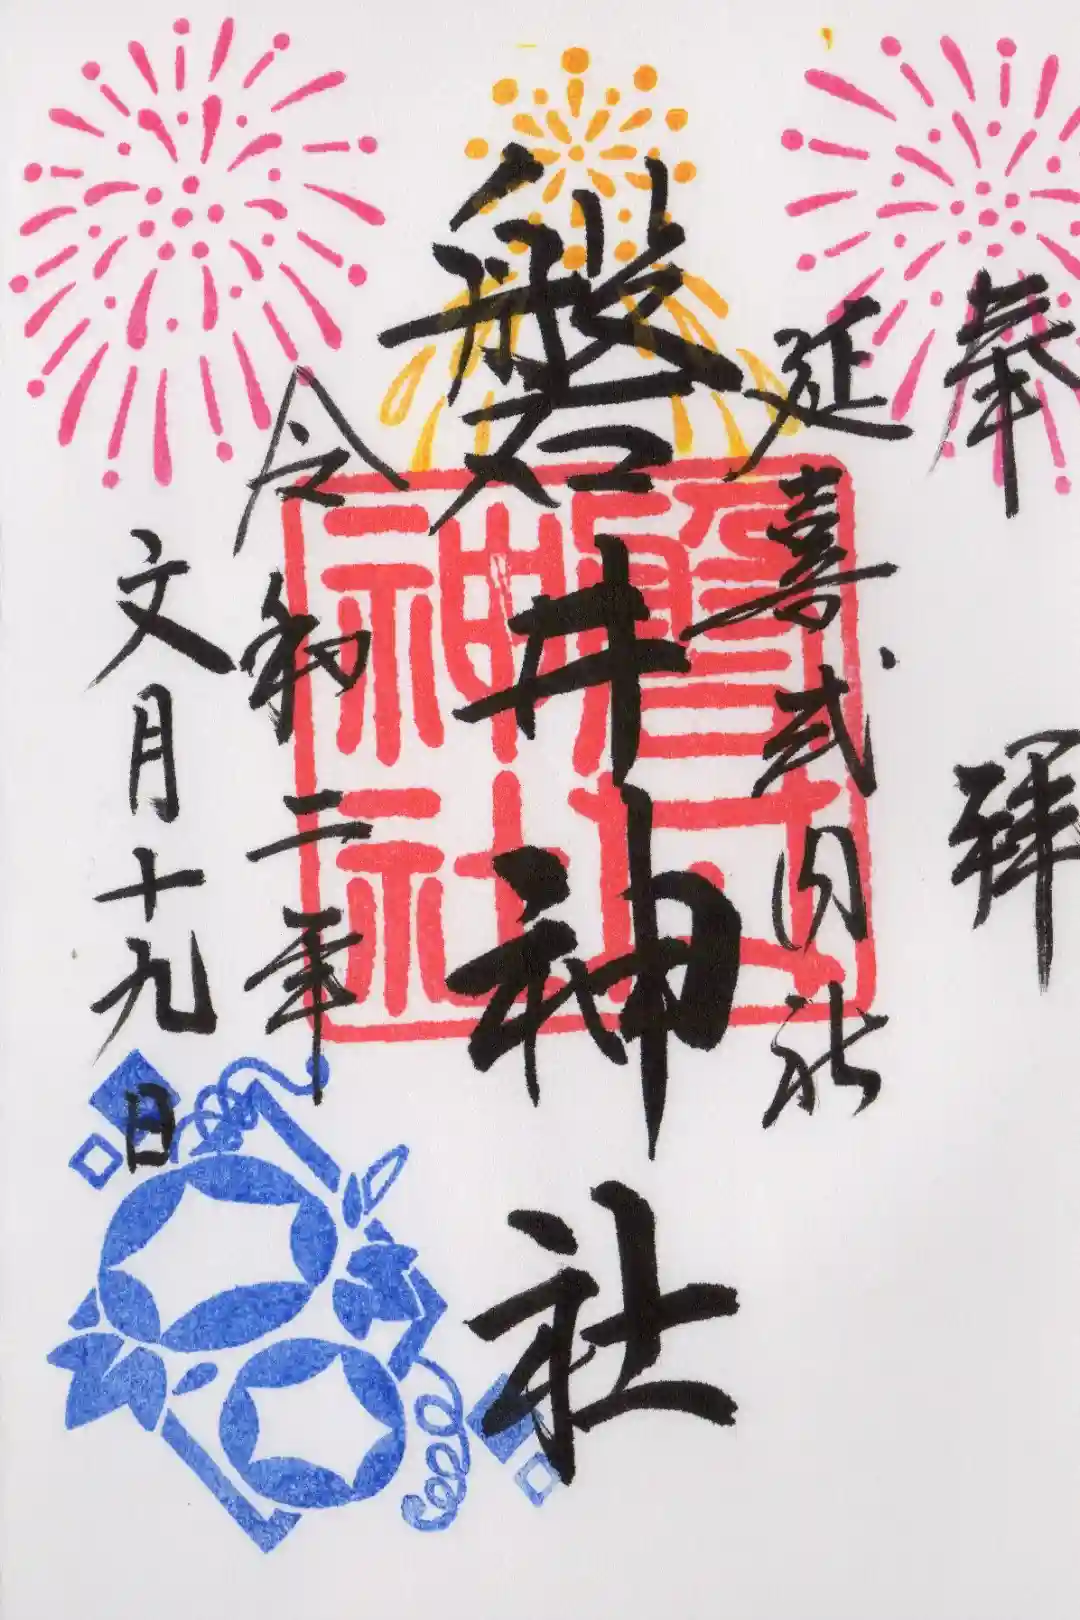 奉拝
延喜式内社
磐井神社
磐井神社
令和二年
文月十九日